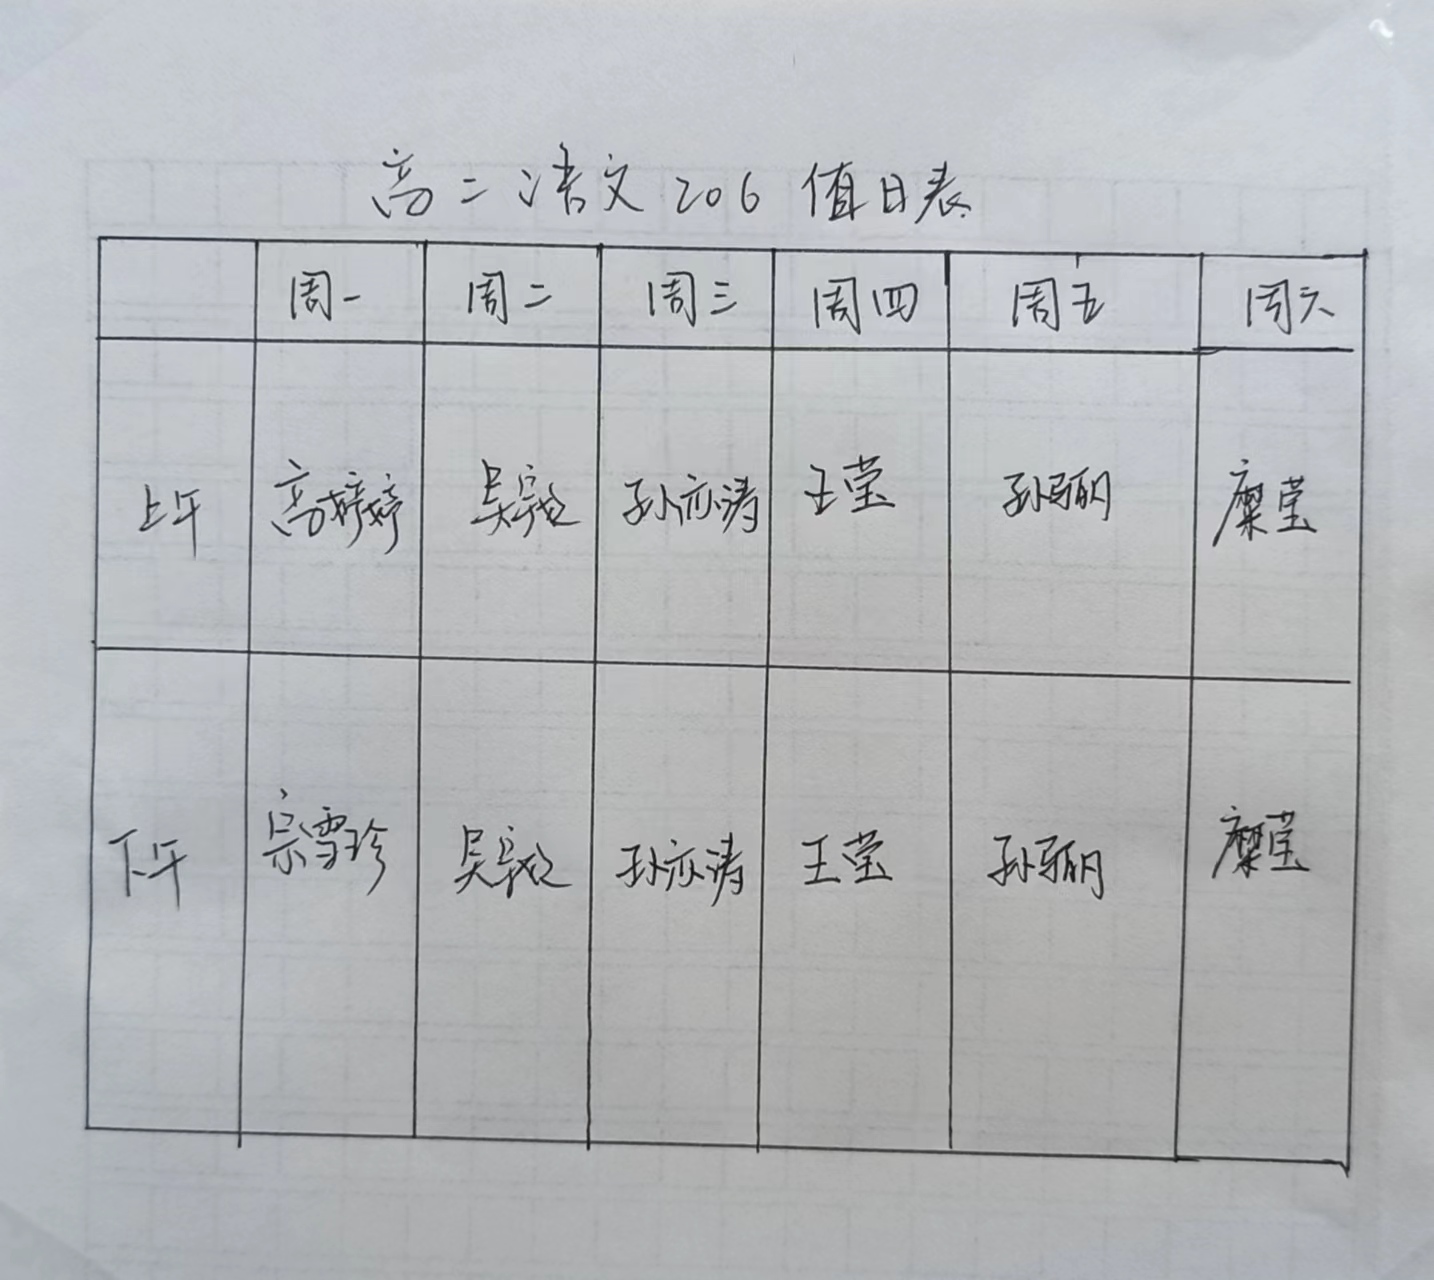 高二语文206 值日表
周一 周二 周三 周四 周五 周六
上午 高婷婷 吴 孙亦涛 王莹 孙骊 糜莹
下午 宗雪珍 吴 孙亦涛 王莹 孙骊 糜莹